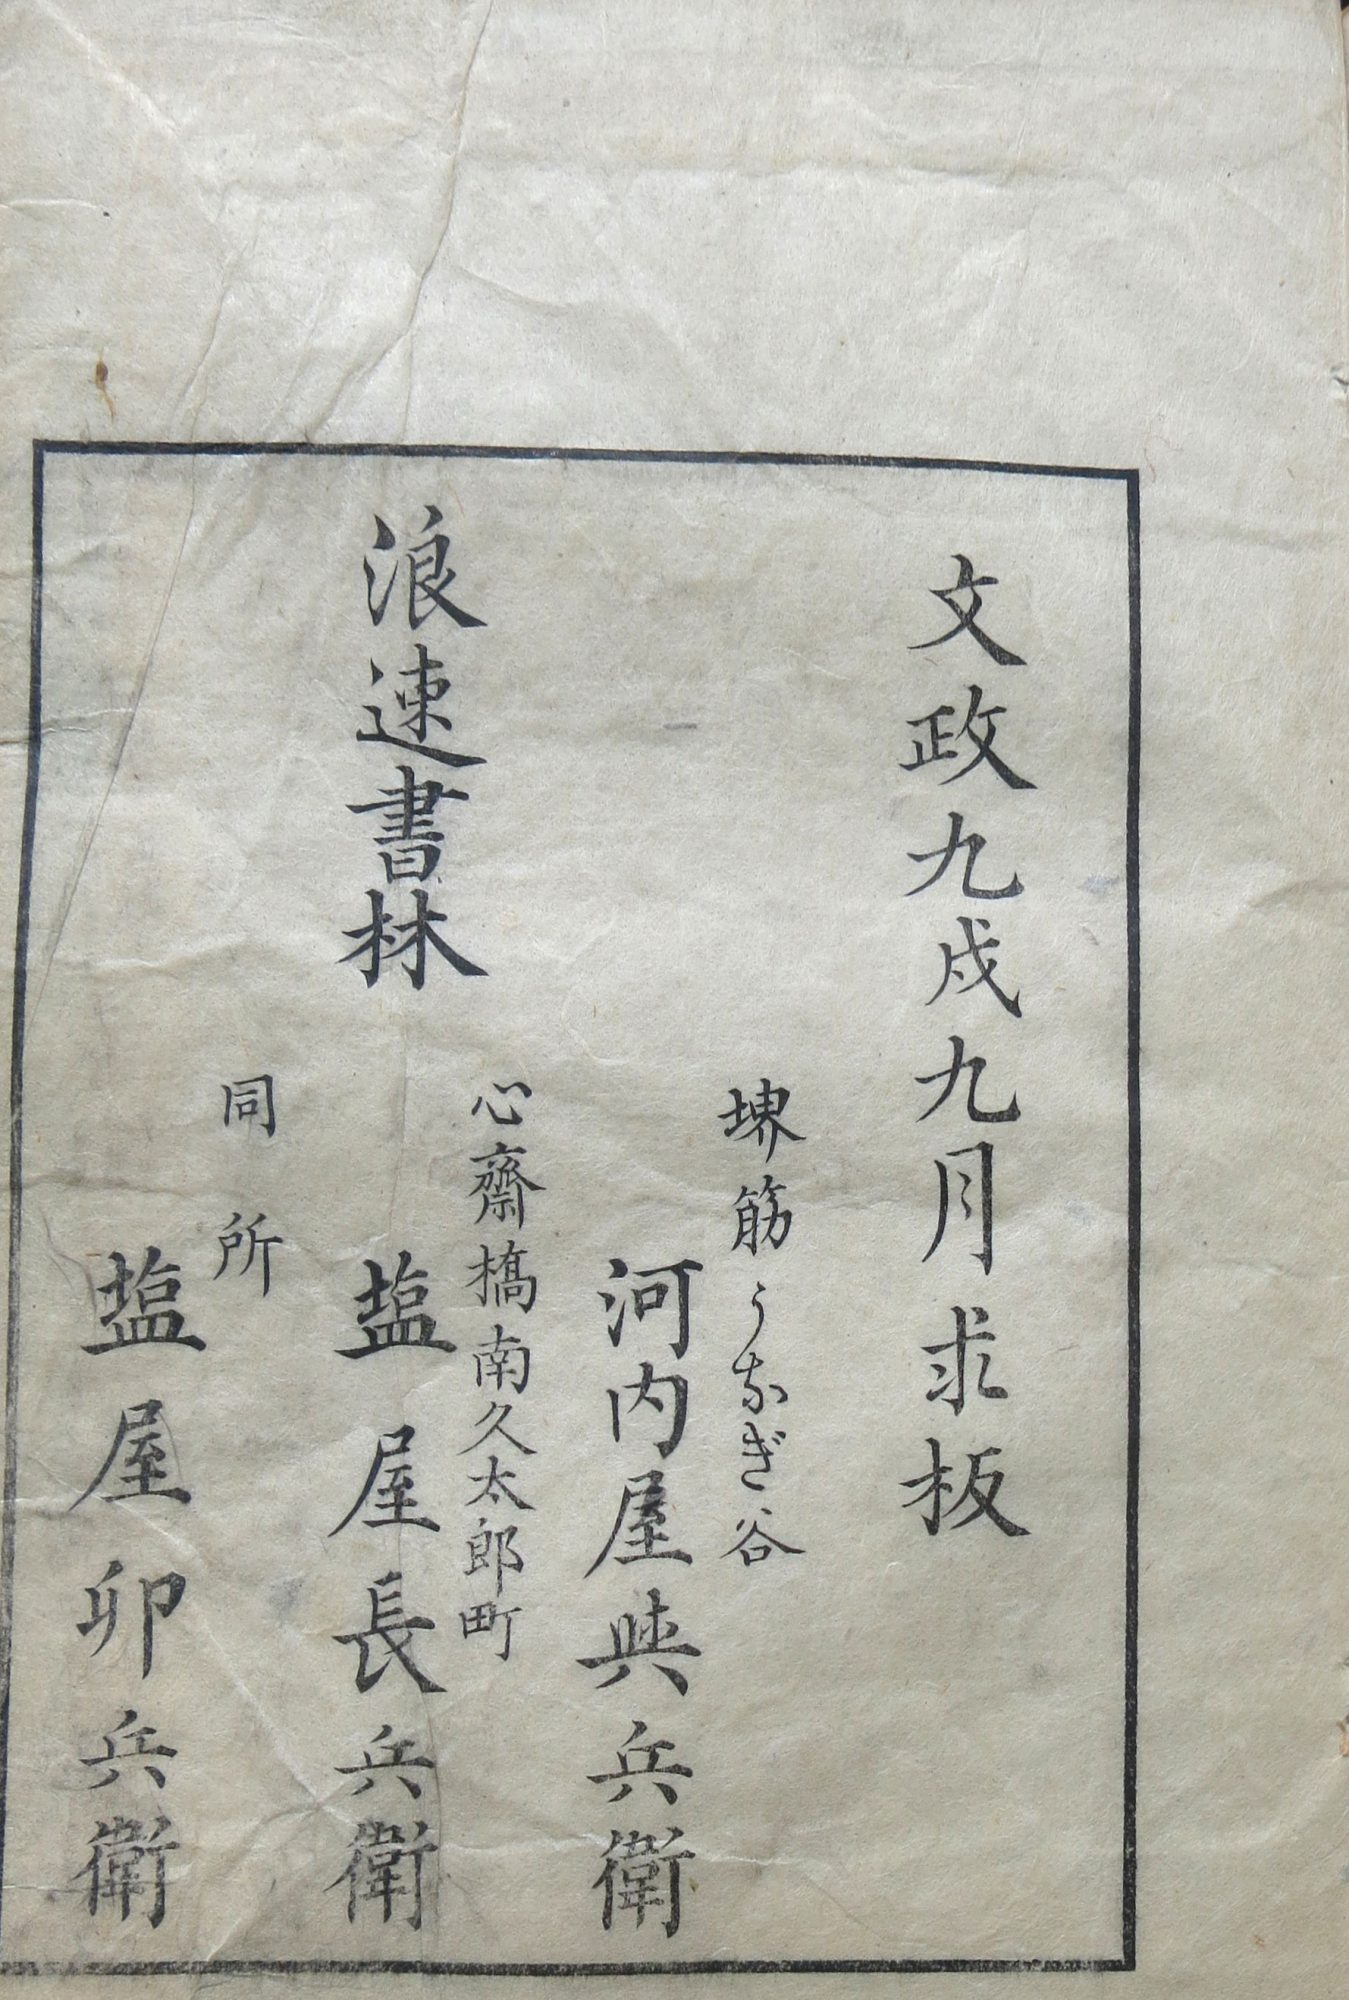 文政九戌九月求板
堺筋うなぎ谷
河内屋與兵衛
浪速書林
心齋橋南久太郎町
塩屋長兵衛
同所
塩屋卯兵衛